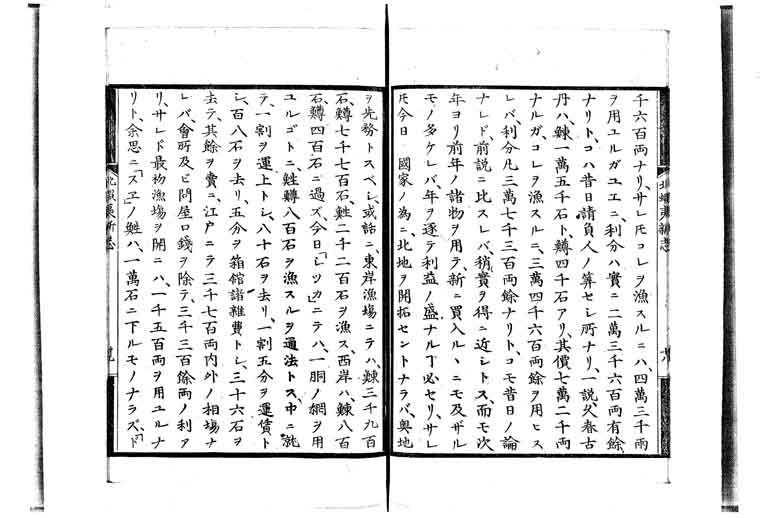 千六百両ナリ、サレ𪜈コレヲ漁スルニハ、四萬三千兩
ヲ用ユルガユエニ、利分ハ實ニ二萬三千六百両有餘
ナリト、コハ昔日請負人ノ算セシ所ナリ、一説、久春古
丹ハ、鰊一萬五千石ト、鱒四千石アリ、其價七萬二千両
ナルガ、コレヲ漁スルニ、三萬四千六百両餘ヲ用ヒス
レバ、利分凡三萬七千三百両餘ナリト、コモ昔日ノ論
ナレド、前説ニ比スレバ、稍實ヲ得ニ近シトス、而モ次
年ヨリ前年ノ諸物ヲ用テ、新ニ買入ルヽニモ及ザル
モノ多ケレバ、年ヲ逐テ利益ノ盛ナルヿ必セリ、サレ
𪜈今日 國家ノ為ニ、北地ヲ開拓セントナラバ、輿地
ヲ先務トスベシ、或話ニ、東岸漁場ニテハ、鰊三千九百
石、鱒七千七百石、鮏二千二百石ヲ漁ス、西岸ハ鰊八百
石、鱒四百石ニ過ズ、今日「レツカ」ニテハ、一胴ノ網ヲ用
ユルゴトニ、鮏鱒八百石ヲ漁スルヲ通法トス、中ニ就
テ、一割ヲ運上トシ、八十石ヲ去リ、一割五分ヲ運賃ト
シ、百八石ヲ去リ、五分ヲ箱館諸雜費トシ、三十六石ヲ
去テ、其餘ヲ賣ニ、江戸ニテ三千七百両内外ノ相場ナ
レバ、會所及ビ問屋口錢ヲ除テ、三千三百餘両ノ利ア
リ、サレド最初漁場ヲ開ニハ、一千五百両ヲ用ユルナ
リト、余思ニ「スヱ」ノ鮏ハ、一萬石ニ下ルモノナラズ、「ト
北蝦夷新志
九